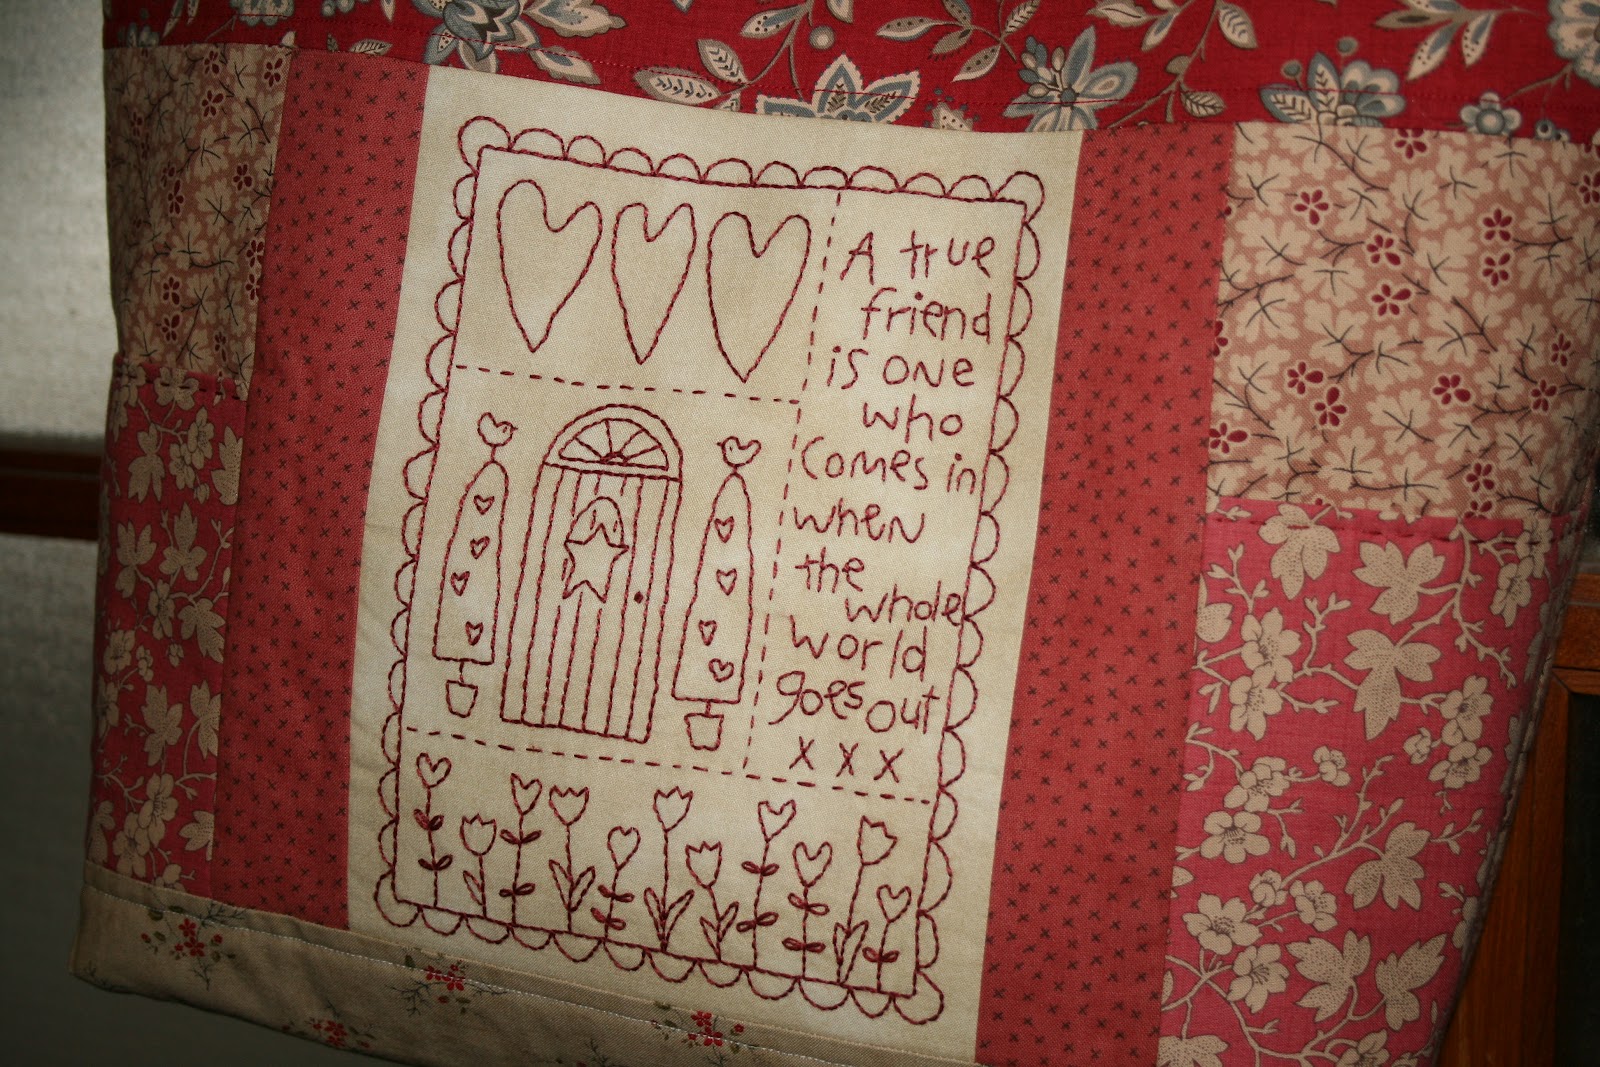 A true
friend
is one
who
comes in
when
the
whole
world
goes out
x x x